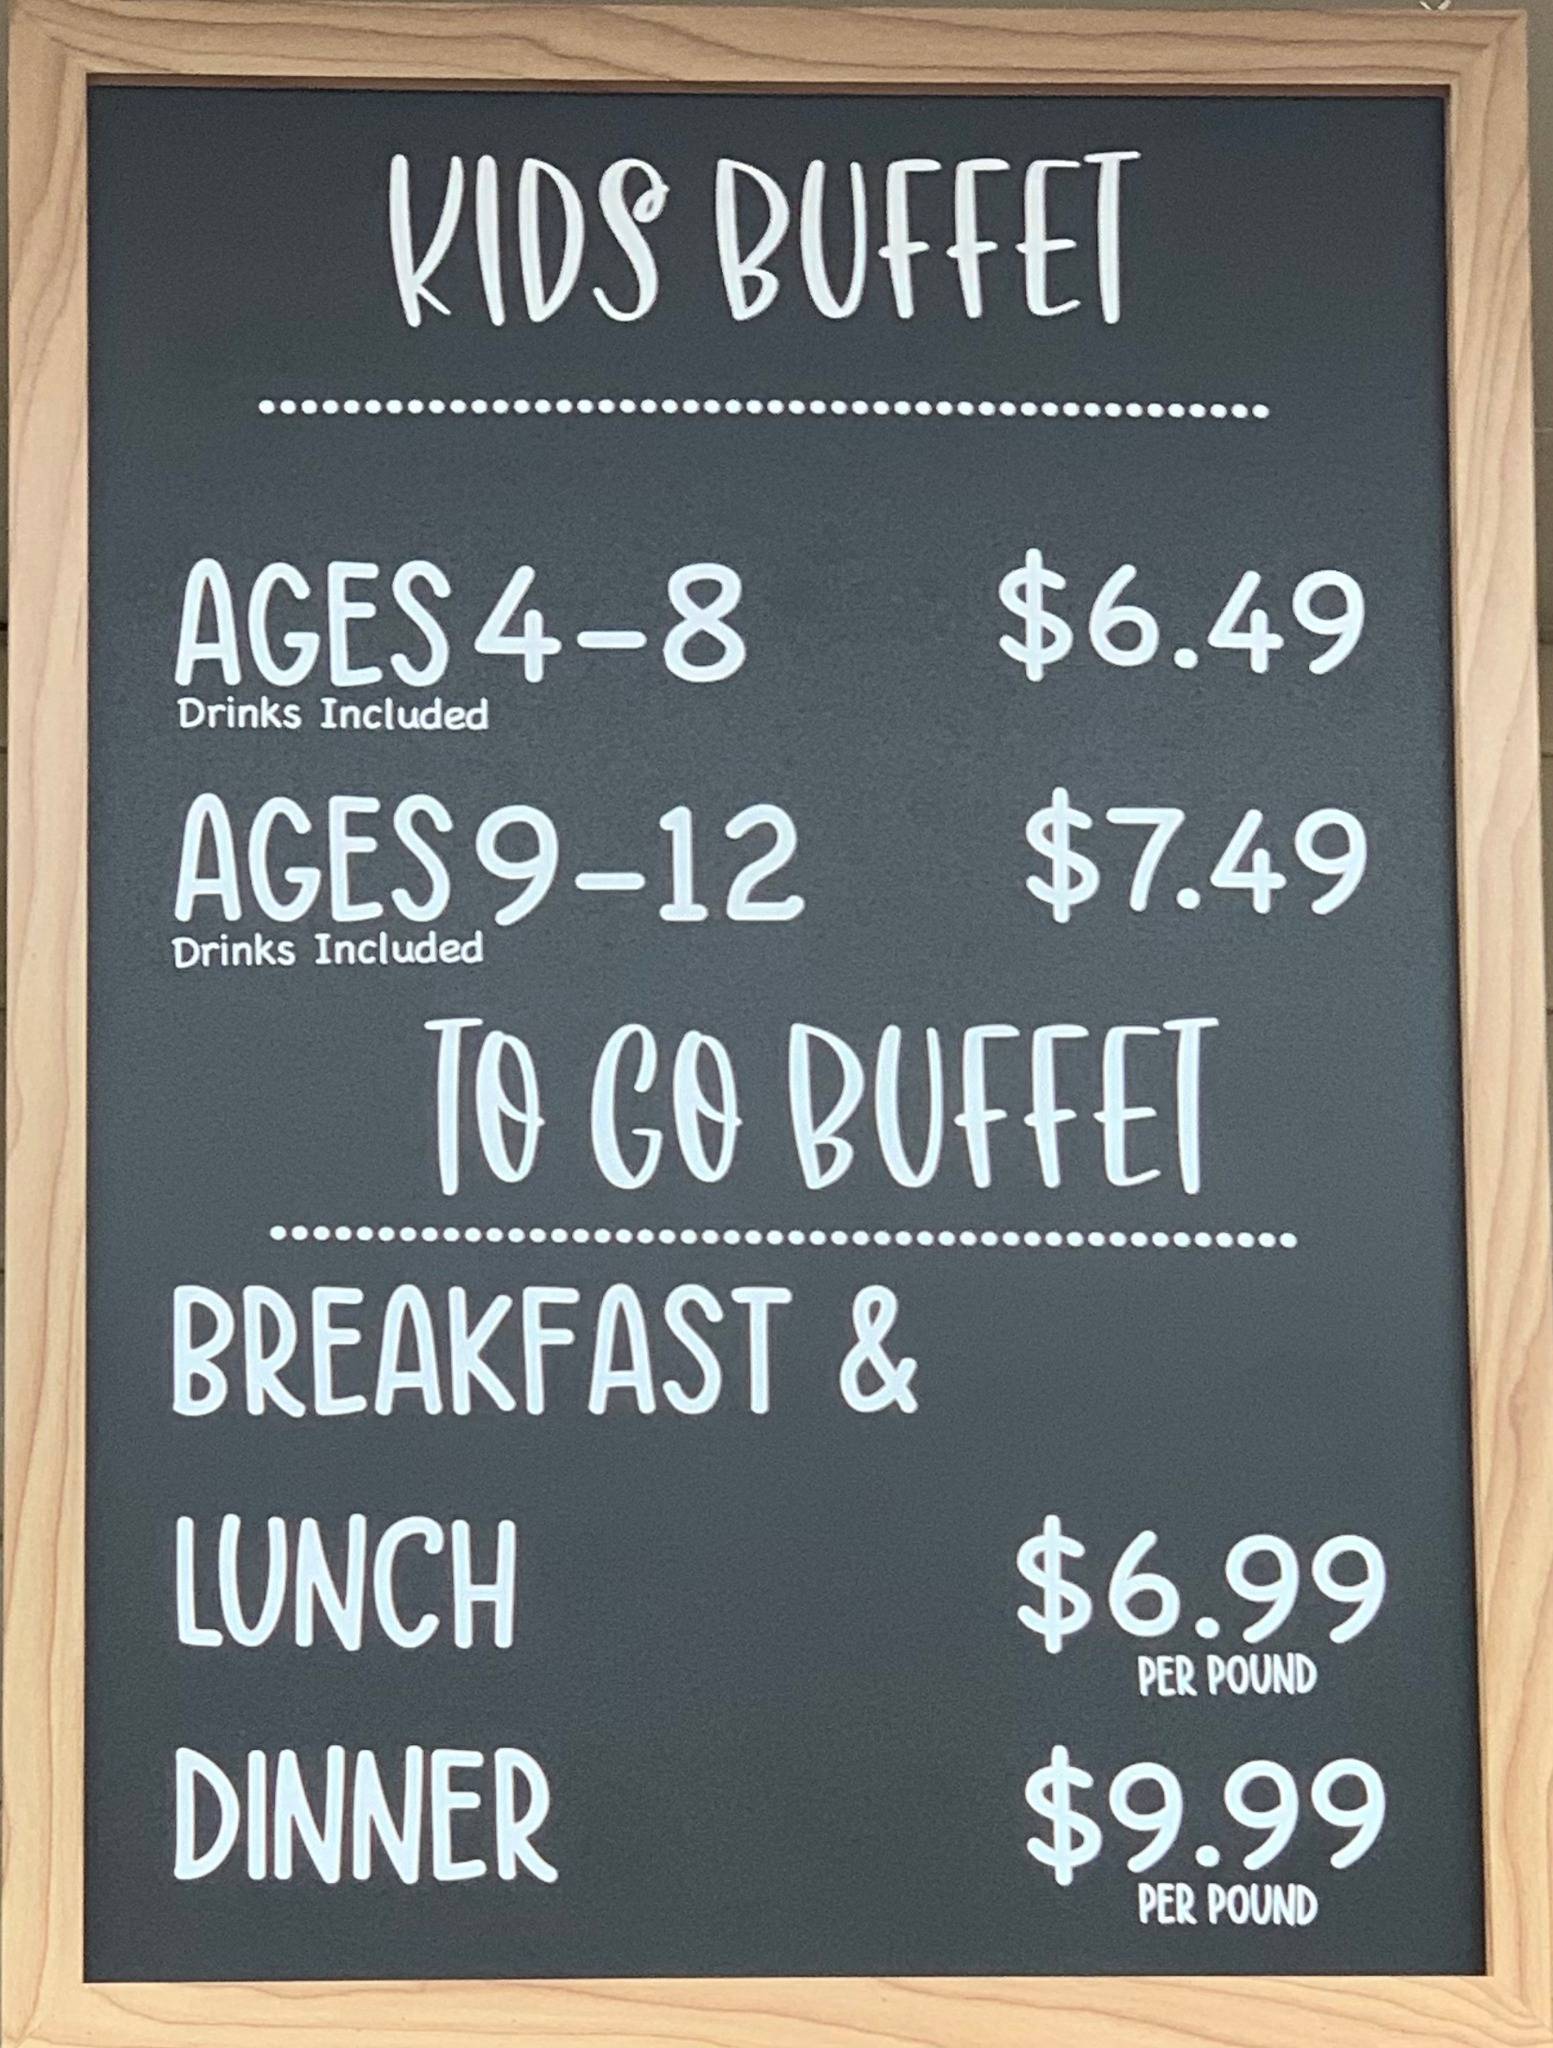 KIDS BUFFET
AGES 4-8 $6.49
Drinks Included
AGES 9-12 $7.49
Drinks Included
TO GO BUFFET
BREAKFAST &
LUNCH $6.99
PER POUND
DINNER $9.99
PER POUND